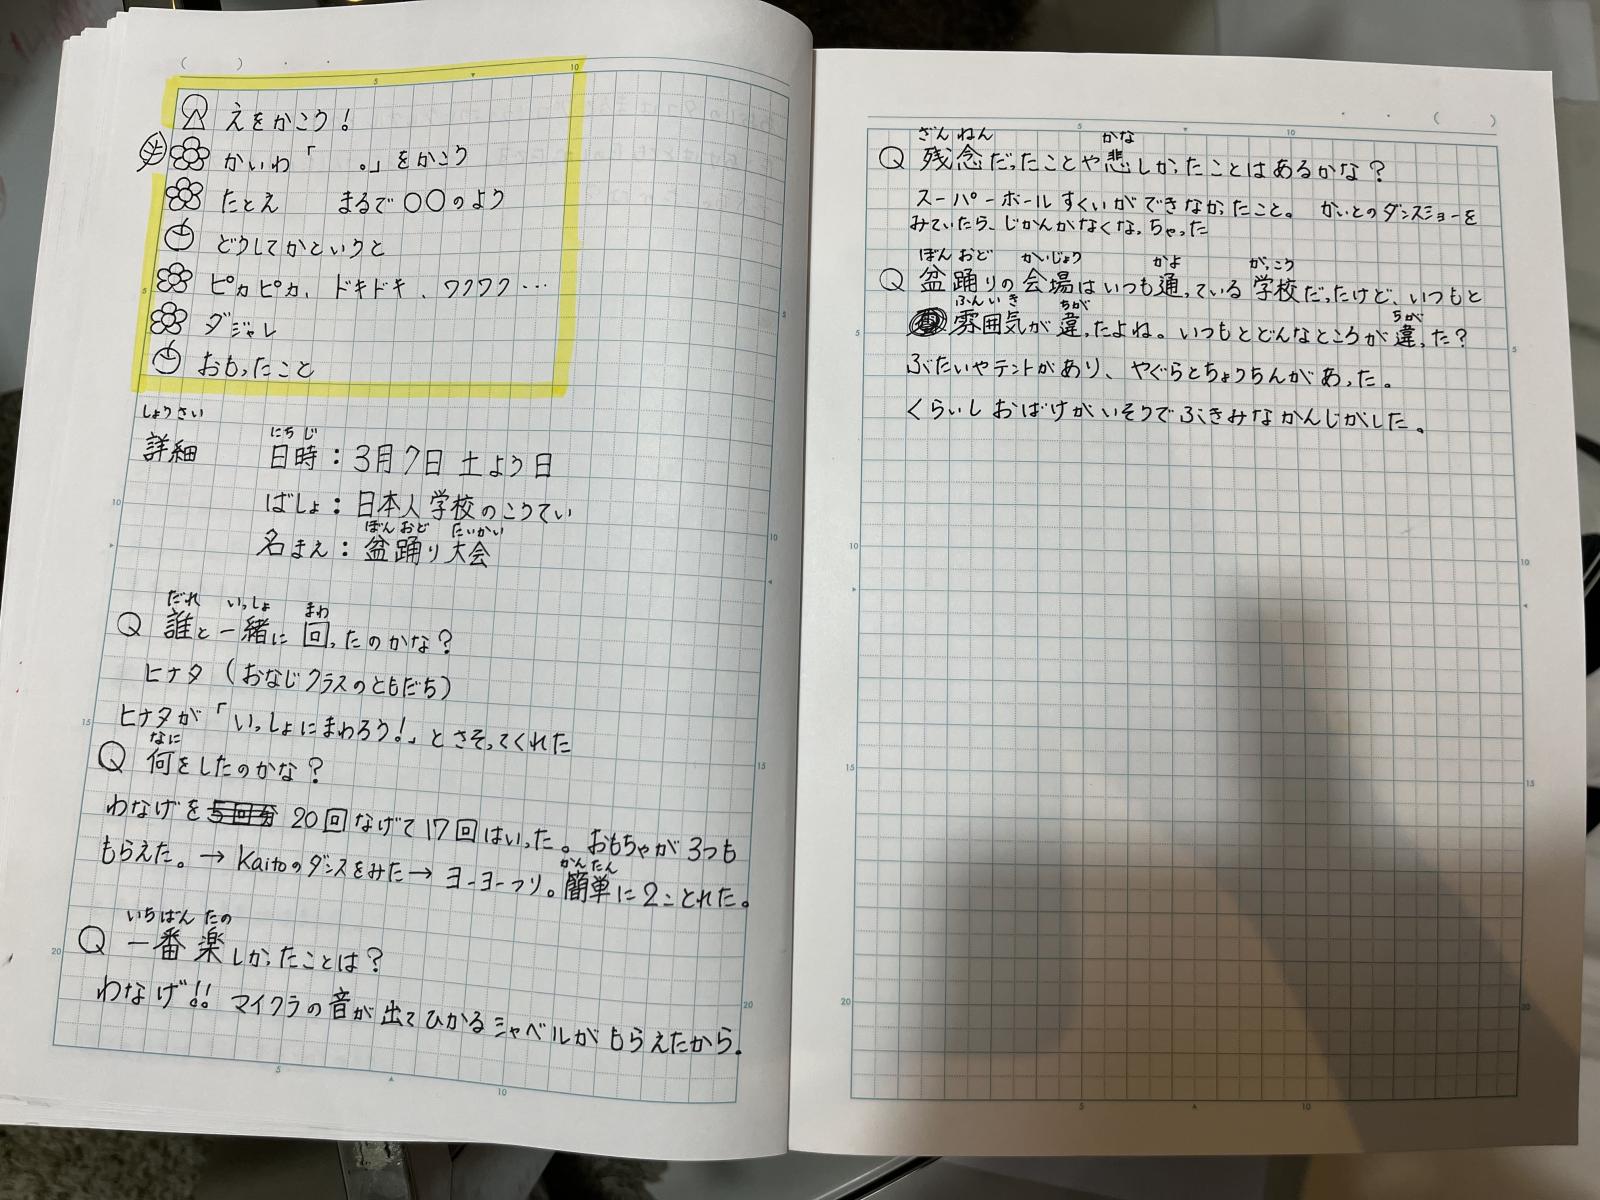 えをかこう！
かいわ「　　。」をかこう
たとえ　まるで〇〇のよう
どうしてかというと
ピカピカ、ドキドキ、ワクワク…
ダジャレ
おもったこと
しょうさい
詳細
にちじ
日時：3月7日 土よう日
ばしょ：日本人学校のこうてい
ぼんおど たいかい
名まえ：盆踊り大会
だれ いっしょ まわ
Q 誰と一緒に回ったのかな？
ヒナタ（おなじクラスのともだち）
ヒナタが「いっしょにまわろう！」とさそってくれた
なに
Q 何をしたのかな？
わなげを5回分 20回なげて17回はいった。おもちゃが3つも
かんたん
もらえた。→Kaitoのダンスをみた→ヨーヨーつり。簡単に2ことれた。
いちばん たの
Q 一番楽しかったことは？
わなげ！！マイクラの音が出てひかるシャベルがもらえたから。
ざんねん かな
Q 残念だったことや悲しかったことはあるかな？
スーパーボールすくいができなかったこと。かいとのダンスショーを
みていたら、じかんがなくなっちゃった
ぼんおど かいじょう かよ がっこう
Q 盆踊りの会場はいつも通っている学校だったけど、いつもと
ふんいき ちが ちが
雰囲気が違ったよね。いつもとどんなところが違った？
ぶたいやテントがあり、やぐらとちょうちんがあった。
くらいしおばけがいそうでぶきみなかんじがした。